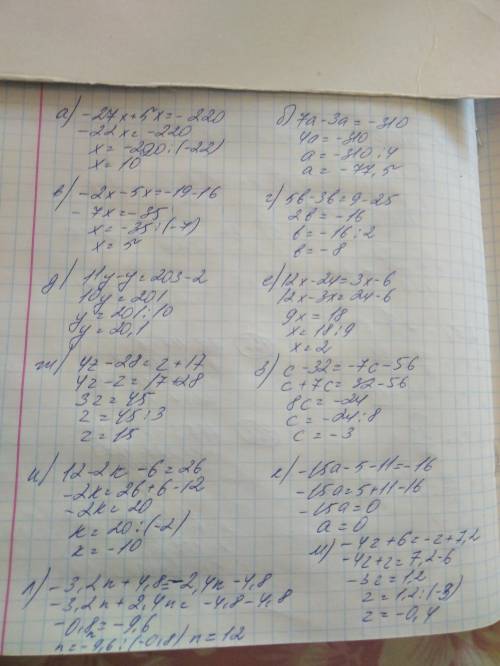 а) -27x+5x=-220
-22x=-220
x=-220:(-22)
x=10
б) 7a-3a=-310
4a=-310
a=-310:4
a=-77,5
в) -2x-5x=-19-16
-7x=-35
x=-35:(-7)
x=5
г) 5b-3b=9-25
2b=-16
b=-16:2
b=-8
д) 11y-y=203-2
10y=201
y=201:10
y=20,1
е) 12x-24=3x-6
12x-3x=24-6
9x=18
x=18:9
x=2
ж) 4z-28=z+17
4z-z=17+28
3z=45
z=45:3
z=15
з) c-32=-7c-56
c+7c=32-56
8c=-24
c=-24:8
c=-3
и) 12-2k-6=26
-2k=26+6-12
-2k=20
k=20:(-2)
k=-10
к) -15a-5-11=-16
-15a=5+11-16
-15a=0
a=0
л) -3,2n+4,8=-2,4n-4,8
-3,2n+2,4n=-4,8-4,8
-0,8n=-9,6
n=-9,6:(-0,8) n=12
м) -4z+6=-z+7,2
-4z+z=7,2-6
-3z=1,2
z=1,2:(-3)
z=-0,4